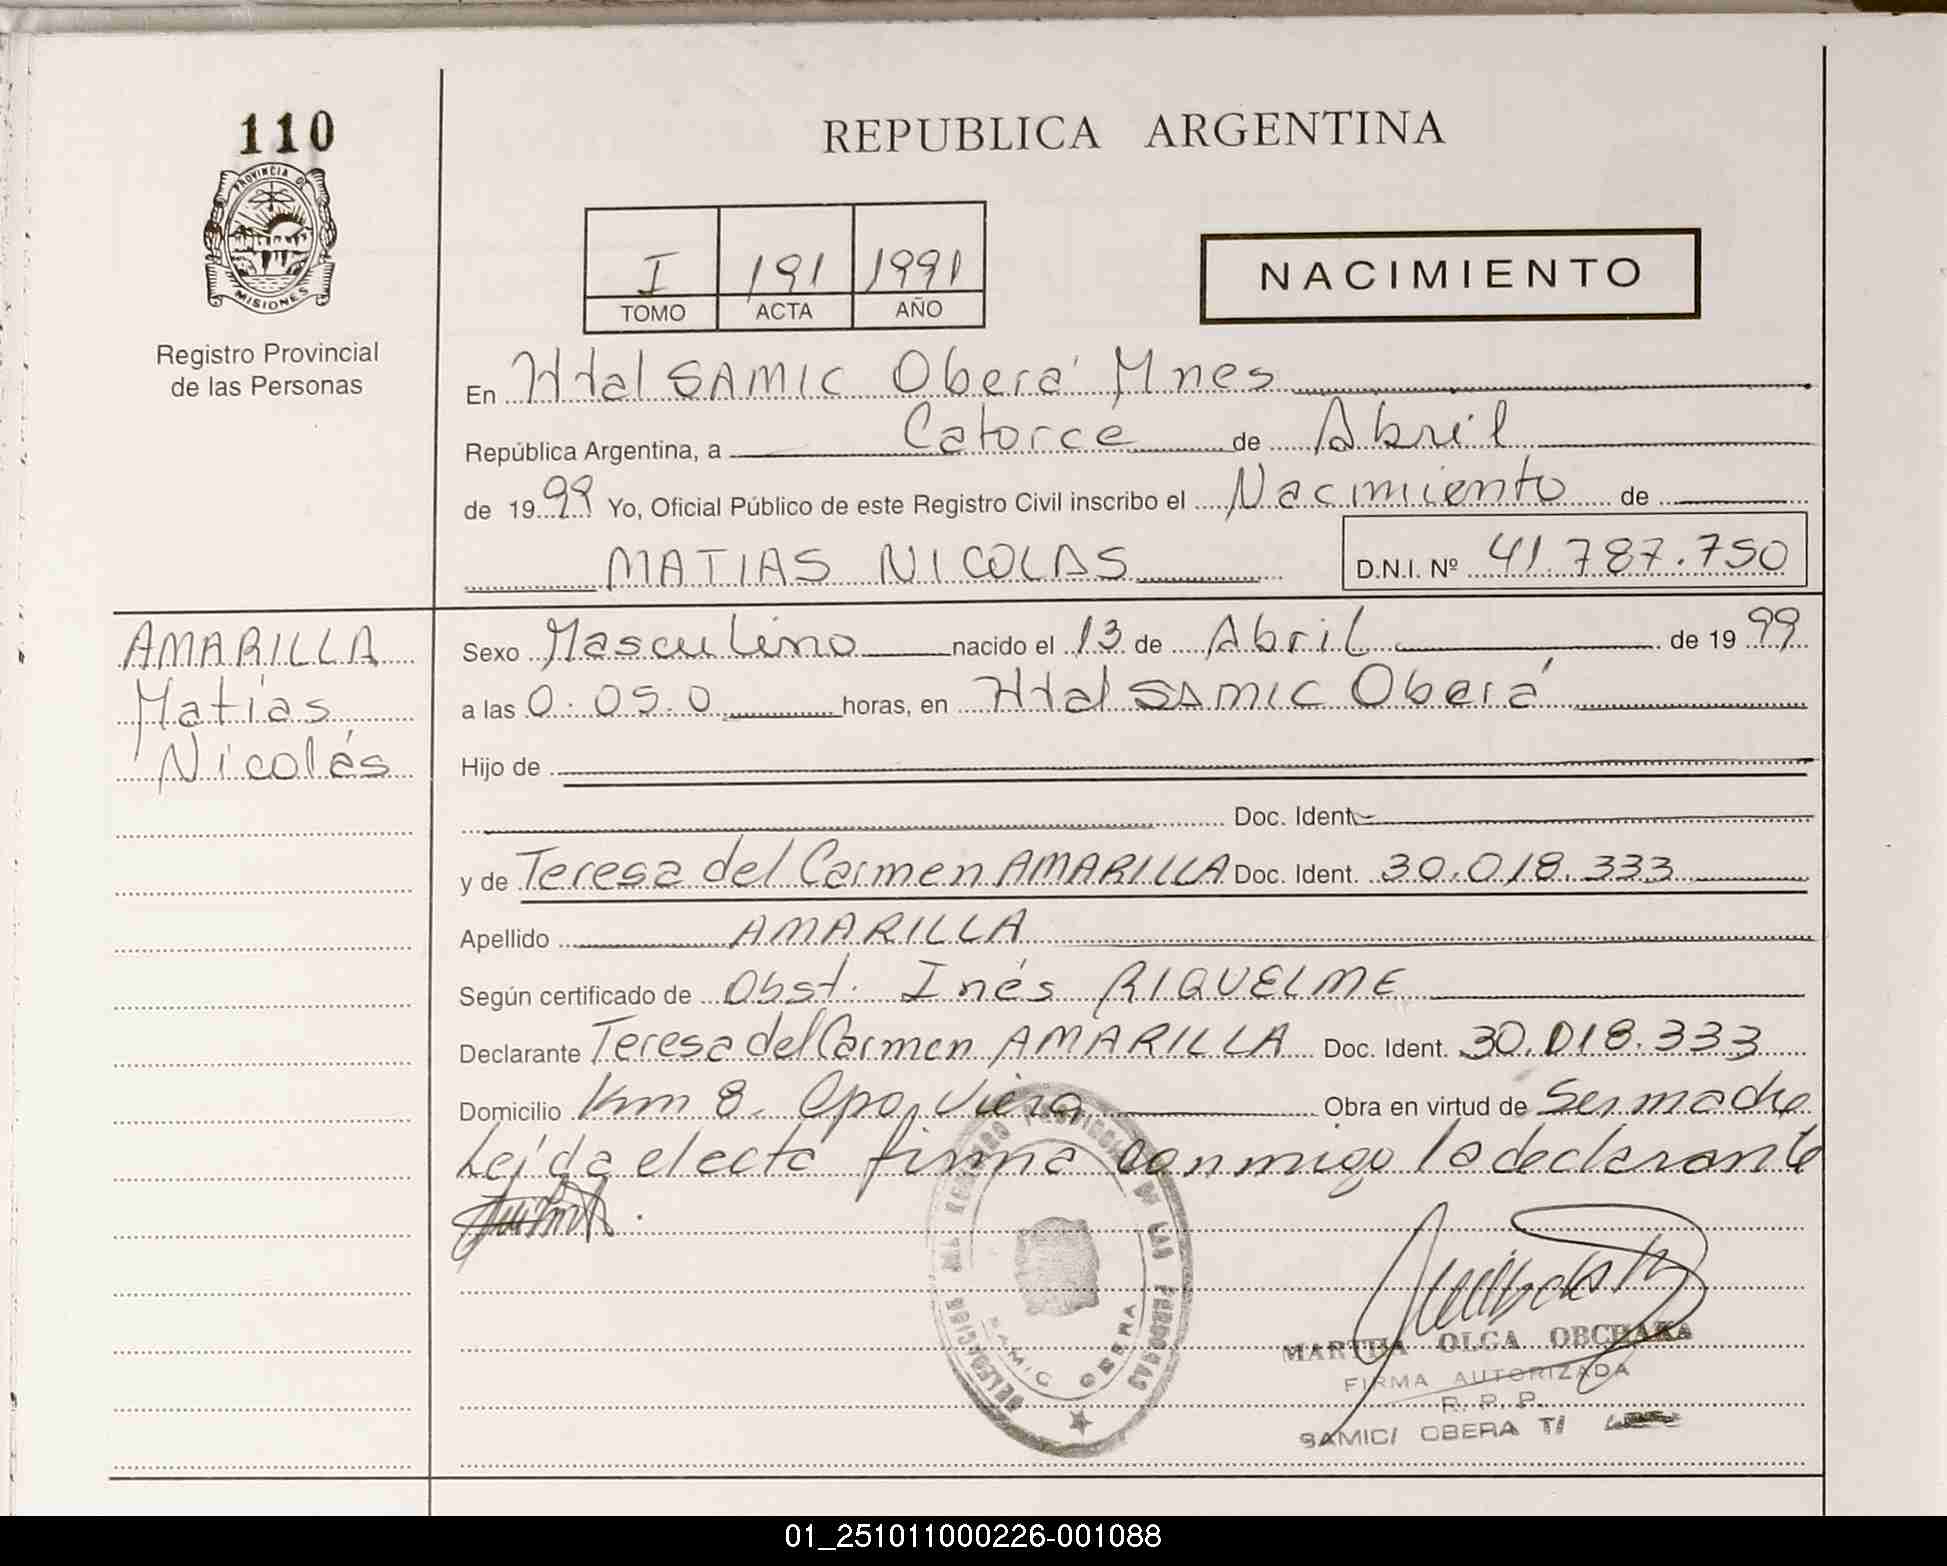 110
PROVINCIA DE
MISIONES
Registro Provincial
de las Personas
REPUBLICA ARGENTINA
I 191 1991
TOMO ACTA AÑO
NACIMIENTO
En Htal SAMIC Oberá Mnes
República Argentina, a Catorce de Abril
de 1999 Yo, Oficial Público de este Registro Civil inscribo el Nacimiento de
MATIAS NICOLAS D.N.I. Nº 41.787.750
AMARILLA
Matías
Nicolás
Sexo Masculino nacido el 13 de Abril de 1999
a las 0:05.0 horas, en Htal SAMIC Oberá
Hijo de
Doc. Ident
y de Teresa del Carmen AMARILLA Doc. Ident. 30.018.333
Apellido AMARILLA
Según certificado de Obst. Inés RIQUELME
Declarante Teresa del Carmen AMARILLA Doc. Ident. 30.018.333
Domicilio Km 8. Cpo. Viera Obra en virtud de Ser madre
Leída el acta firma conmigo la declarante
DELEGACION DEL REGISTRO PROVINCIAL DE LAS PERSONAS
SAMIC OBERA
MARTHA OLGA OBCHAKA
FIRMA AUTORIZADA
R. P. P.
SAMIC/ OBERA T/
01_251011000226-001088